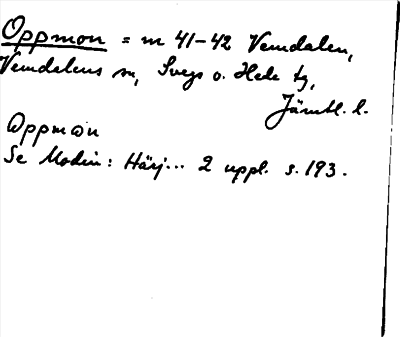 Oppmon = m 41-42 Vemdalen,
Vemdalens sn, Svegs o. Hede tg,
Jämtl. l.
Oppmon
Se Modin: Härj... 2 uppl. s. 193.